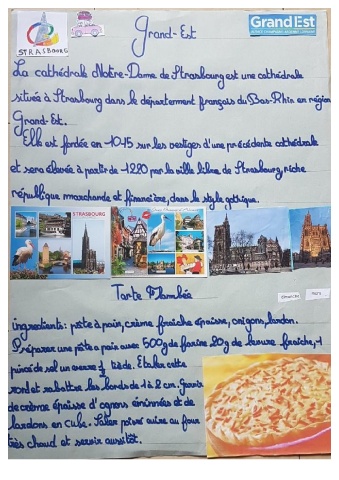 STRASBOURG
Grand-Est
GrandEst
La cathédrale Notre-Dame de Strasbourg est une cathédrale
située à Strasbourg dans le département français du Bas-Rhin en région
Grand-Est.
Elle est fondée en 1015 sur les vestiges d'une précédente cathédrale
et sera élevée à partir de 1220 par la ville libre de Strasbourg, riche
république marchande et financière, dans le style gothique.
STRASBOURG
Tarte Flambée
ingredients: pâte à pain, crème fraîche épaisse, oignons, lardon.
Préparer une pâte à pain avec 500g de farine 20g de levure fraîche, 1
pincé de sel un verre ½ tiède. Etaler cette
rond et rabattre les bords de 1 à 2 cm. Garnir
de crème épaisse d'ognons émincées et de
lardons en cube. Saler poivré cuire au four
très chaud et servir aussitôt.